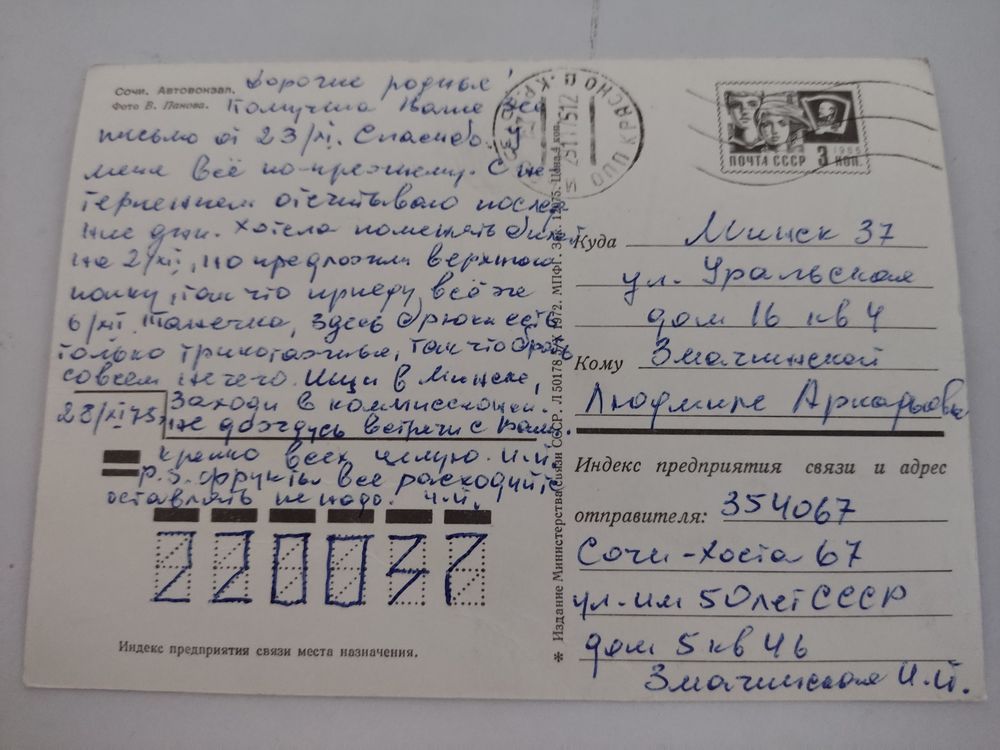 Сочи. Автовокзал.
Фото В. Панова.
Дорогие родные!
Получила Ваше
письмо от 23/XI. Спасибо. У
меня всё по-прежнему. С не
терпением отсчитываю послед
ние дни. Хотела поменять билет
на 2/XII, но предложили верхнюю
полку, так что приеду всё же
6/XII. Танечка, здесь брюки есть
только трикотажные, так что брать
совсем нечего. Ищи в Минске,
Заходи в комиссионки.
28/XI 75
не дождусь встречи с Вами.
Крепко всех целую. И.И.
P.S. фрукты все расходуйте
оставлять не надо. И.И.
220037
Индекс предприятия связи места назначения.
* Издание Министерства связи СССР. Л 50178 5/X 1972. МПФГ. Зак. 12075. Цена 4 коп.
291175 12
ПОЧТА СССР 3 КОП.
1966
Куда Минск 37
ул. Уральская
дом 16 кв 4
Кому Змачинской
Людмиле Аркадьевне
Индекс предприятия связи и адрес
отправителя: 354067
Сочи-Хоста 67
ул. им 50 лет СССР
дом 5 кв 46
Змачинская И.И.